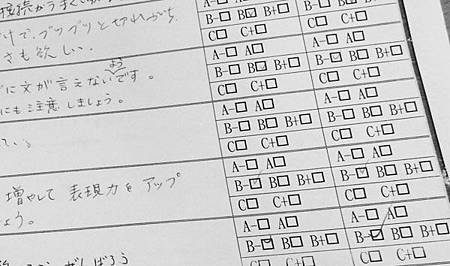 けで、ブツブツと切れがち
さも欲しい.
A-□ A□
B-□ B□ B+□
C□ C+□
に文が言えないようです。
にも注意しましょう。
A-□ A□
B-□ B□ B+□
C□ C+□
A-□ A□
B-□ B□ B+□
C□ C+□
増やして 表現力を アップ
ょう。
A-□ A□
B-□ B□ B+□
C□ C+□
A-□ A□
B-□ B□ B+□
C□ C+□
A-□ A□
B-□ B□ B+□
C□ C+□
A-□ A□
B-□ B□ B+□
C□ C+□
がんばろう
A-□ A□
B-□ B□ B+□
C□ C+□
A-□ A□
B-□ B□ B+□